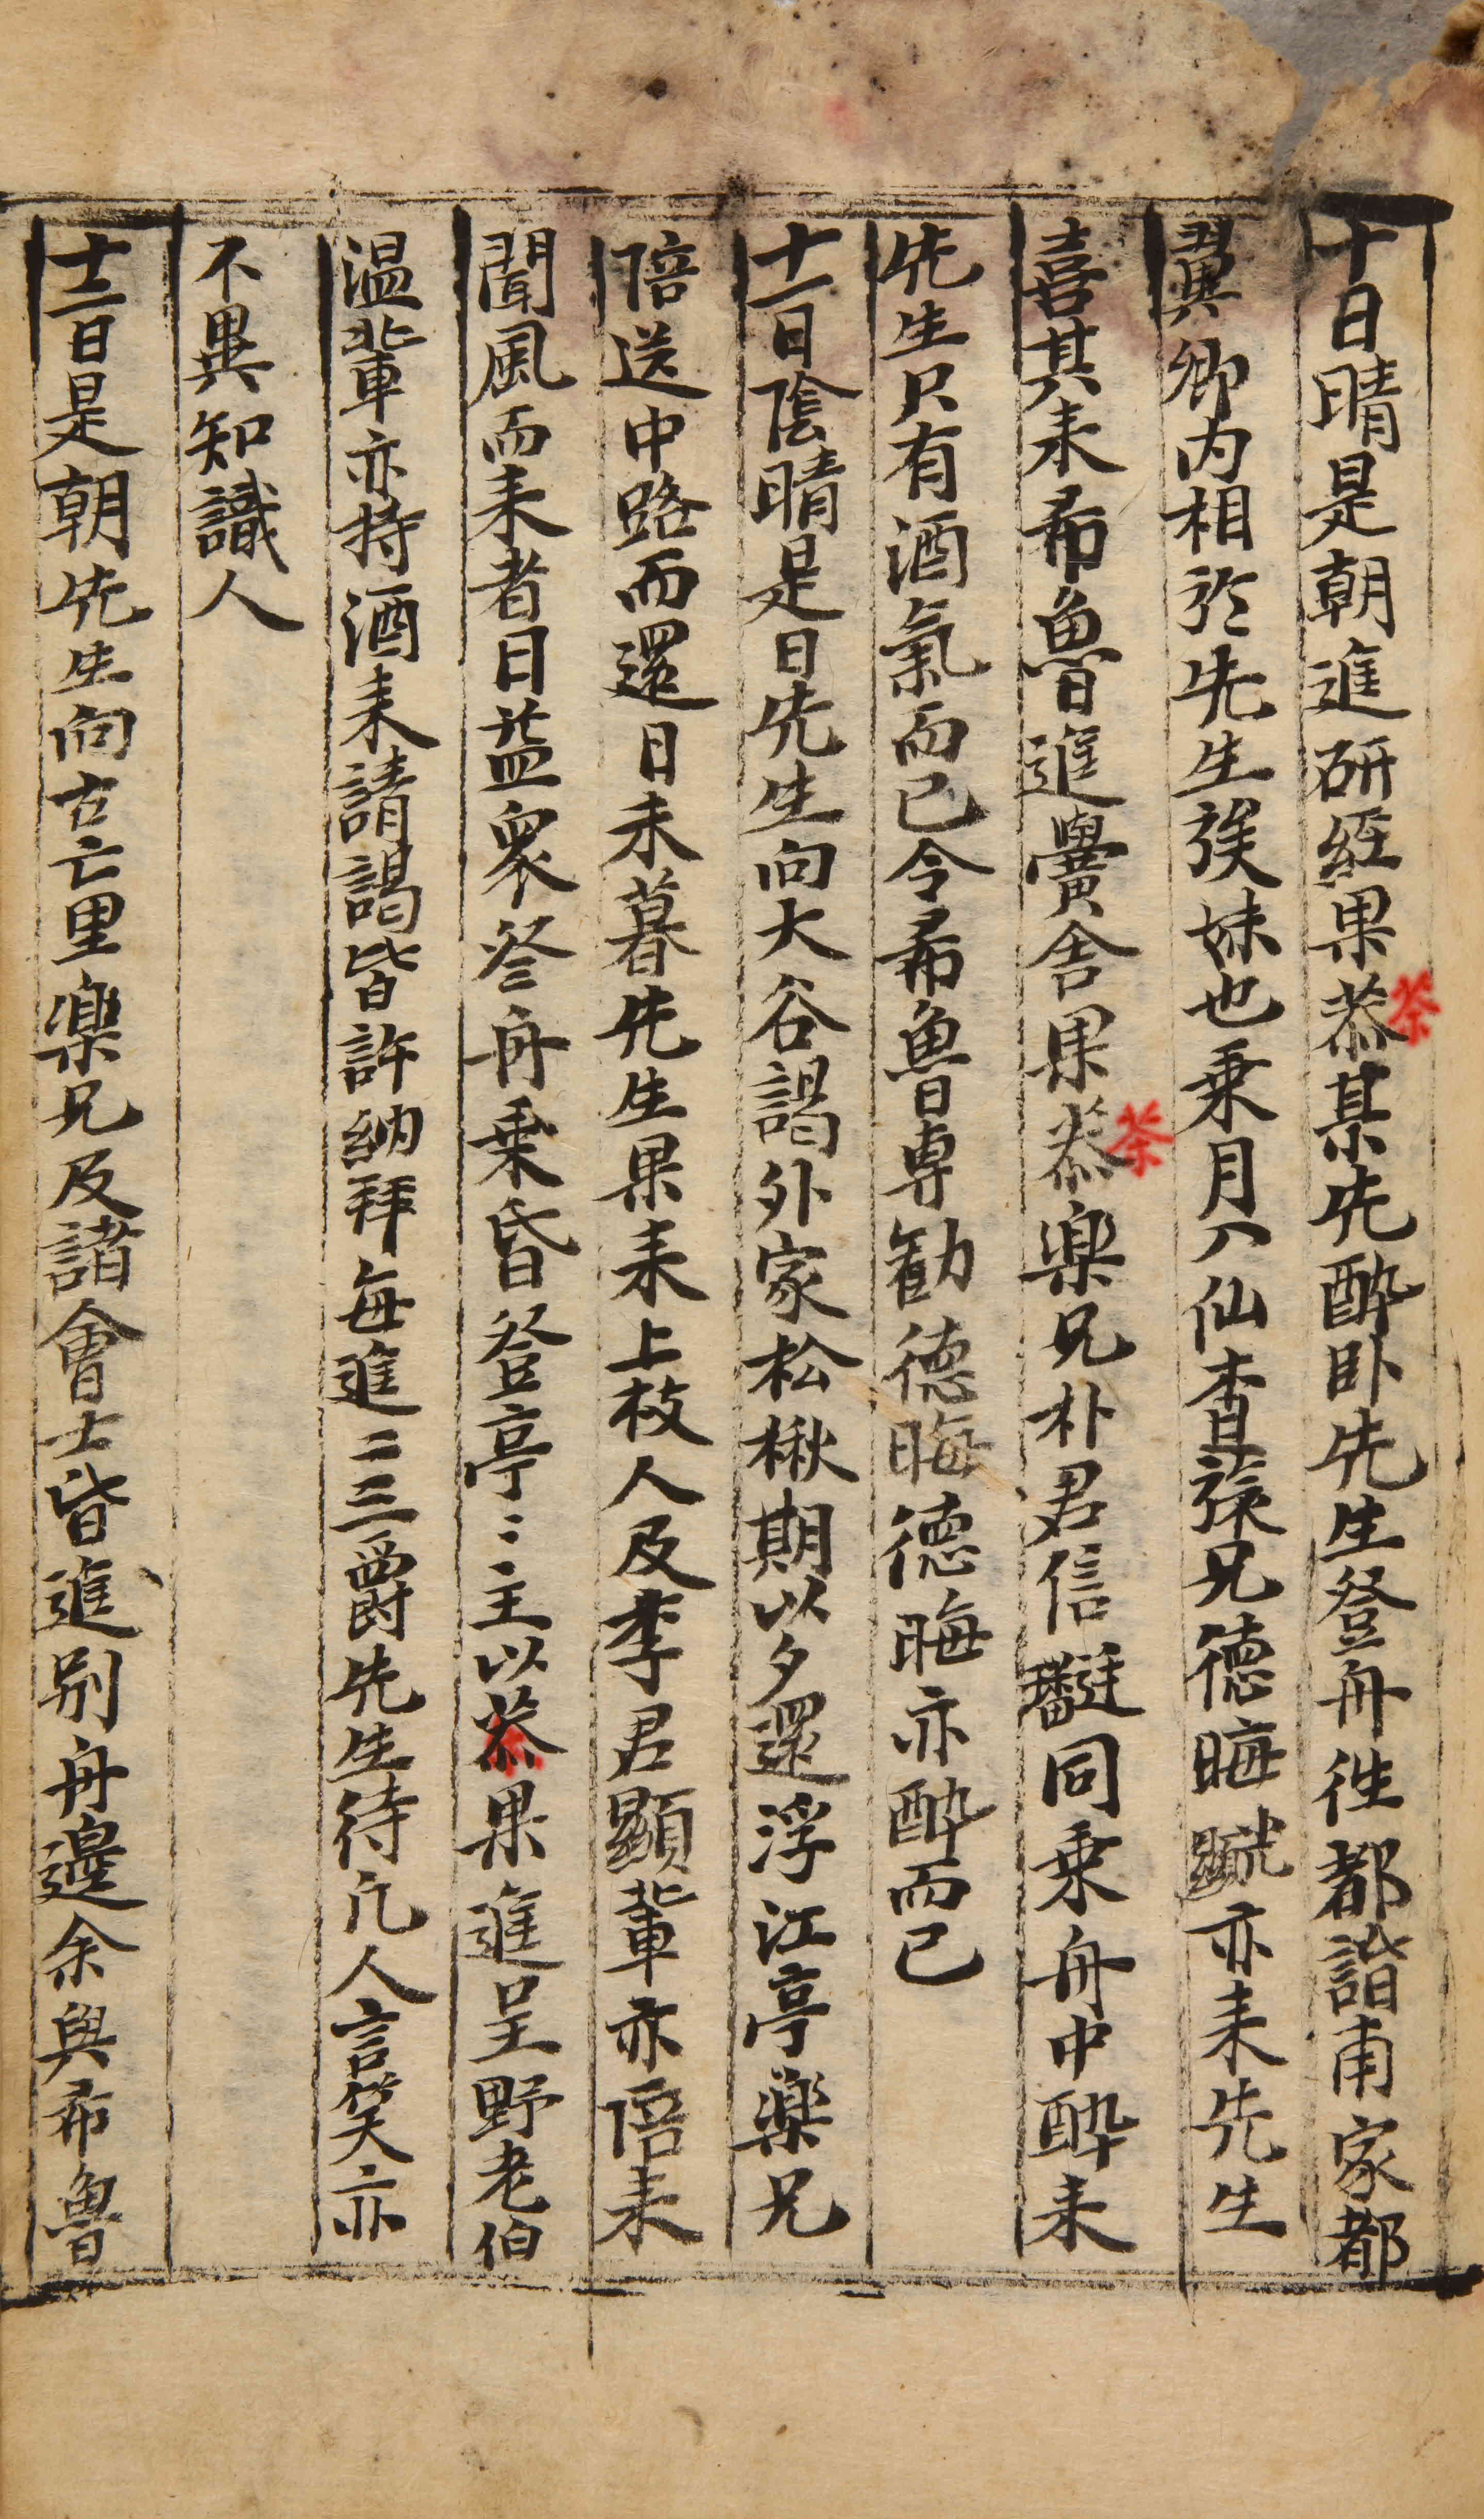 十日晴是朝進硏經果恭某先醉卧先生登舟徃都諧甫家都
茶
翼卿内相於先生族妹也乗月八仙査蓀兄德晦亦耒先生
喜其耒希魯進黌舎果恭樂兄朴君信同乗舟中醉耒
茶
先生只有酒氣而已令希魯専勧德晦德晦亦醉而已
十一日陰晴是日先生向大谷謁外家松楸期以夕還浮江亭樂兄
陪送中路而還日未暮先生果耒上枝人及李君顯輩亦陪耒
聞風而耒者日益衆登舟乗昏登亭〻主以茶果進呈野老伯
温輩亦持酒耒請謁皆許納拜每進二三爵先生待凢人言笑亦
不異知識人
十二日是朝先生向古亡里樂兄及諸會士皆進别舟邉余與希魯